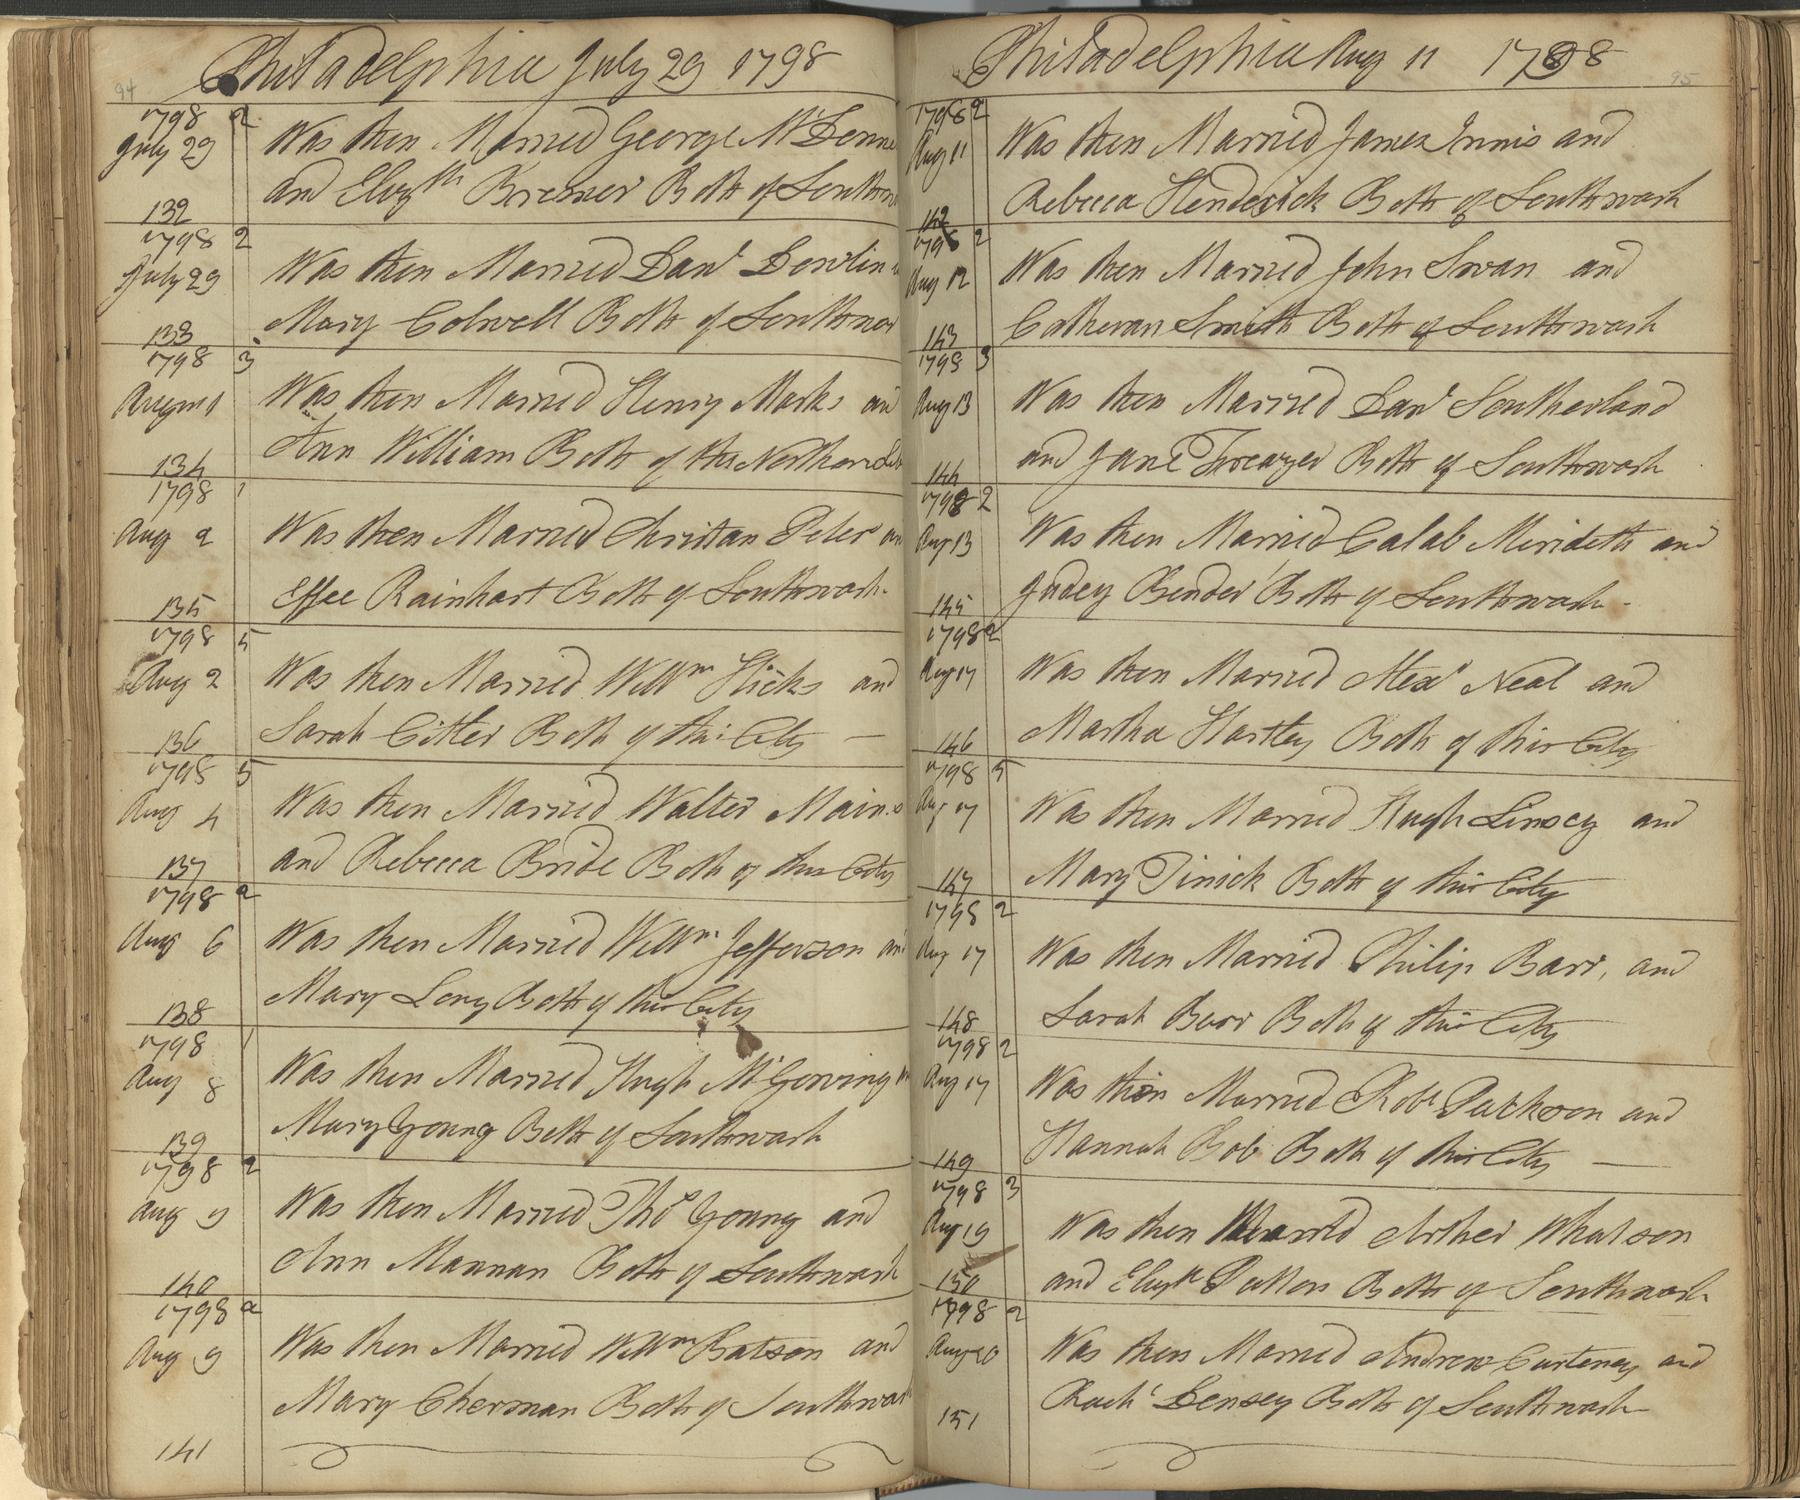 Philadelphia July 29 1798
94
1798 2
July 29 Was then Married George McDenne
and Elizth Bremer Both of Southwa
132
1798 2
July 29 Was then Married Danl Dowlin
Mary Colwell Both of Southwar
133
1798 3
August 1 Was then Married Henry Marks an
Ann William Both of the Northern Lib
134
1798 1
Aug 2 Was then Married Christian Peter an
Effee Rainhart Both of Southwark
135
1798 5
Aug 2 Was then Married Willm Hicks and
Sarah Citler Both of this City —
136
1798 5
Aug 4 Was then Married Walter Mains
and Rebecca Bride Both of this City
137
1798 2
Aug 6 Was then Married Willm Jefferson an
Mary Long Both of this City
138
1798 1
Aug 8 Was then Married Hugh McGowing
Mary Young Both of Southwark
139
1798 2
Aug 9 Was then Married Thos Young and
Ann Mannan Both of Southwark
140
1798 2
Aug 9 Was then Married Willm Batson and
Mary Cherman Both of Southwark
141
Philadelphia Aug 11 1798
95
1798 2
Aug 11 Was then Married James Innis and
Rebecca Henderick Both of Southwark
142
1798 2
Aug 12 Was then Married John Swan and
Catheran Smith Both of Southwark
143
1798 3
Aug 13 Was then Married Danl Southerland
and Jane Both of Southwark
144
1798 2
Aug 13 Was then Married Calab Merideth and
Judey Bender Both of Southwark -
145
1798 2
Aug 17 Was then Married Alexr Neal and
Martha Hartley Both of this City
146
1798 5
Aug 17 Was then Married Hugh Linsey and
Mary Pinick Both of this City
147
1798 2
Aug 17 Was then Married Philip Barr, and
Sarah Burr Both of this City
148
1798 2
Aug 17 Was then Married Robt Parkson and
Hannah Bob Both of this City —
149
1798 3
Aug 19 Was then Married Arther Whatson
and Elizth Patton Both of Southwark
150
1798 2
Aug 20 Was then Married Andrew Curteney and
Rachl Densey Both of Southwark
151